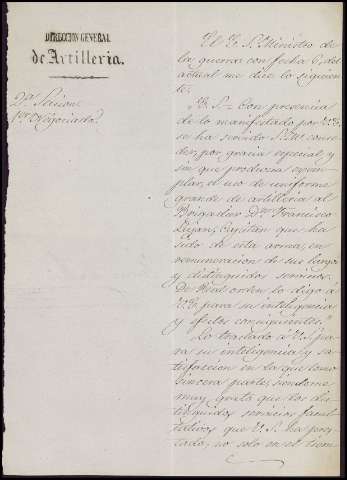 DIRECCION GENERAL
de Artilleria.
2ª Seccion
1er Negociado
El E. S. Ministro de
la guerra con fecha 6, del
actual me dice lo siguien-
te.
"E. S. = Con presencia
de lo manifestado por V.E.
se ha servido S. M. conce-
der, por gracia especial y
sin que produzca ejem-
plar, el uso de uniforme
grande de artilleria al
Brigadier Dn Francisco
Lujan, Capitan que ha
sido de esta arma, en
remuneracion de sus largos
y distinguidos servicios.
De Real orden lo digo á
V.E. para su inteligencia
y efectos consiguientes."
Lo traslado á V.S. pa-
ra su inteligencia y sa-
tisfaccion en la que tomo
sincera parte, siendome
muy grato que los dis-
tinguidos servicios facul-
tativos que V. S. ha pres-
tado, no solo en el tiem-